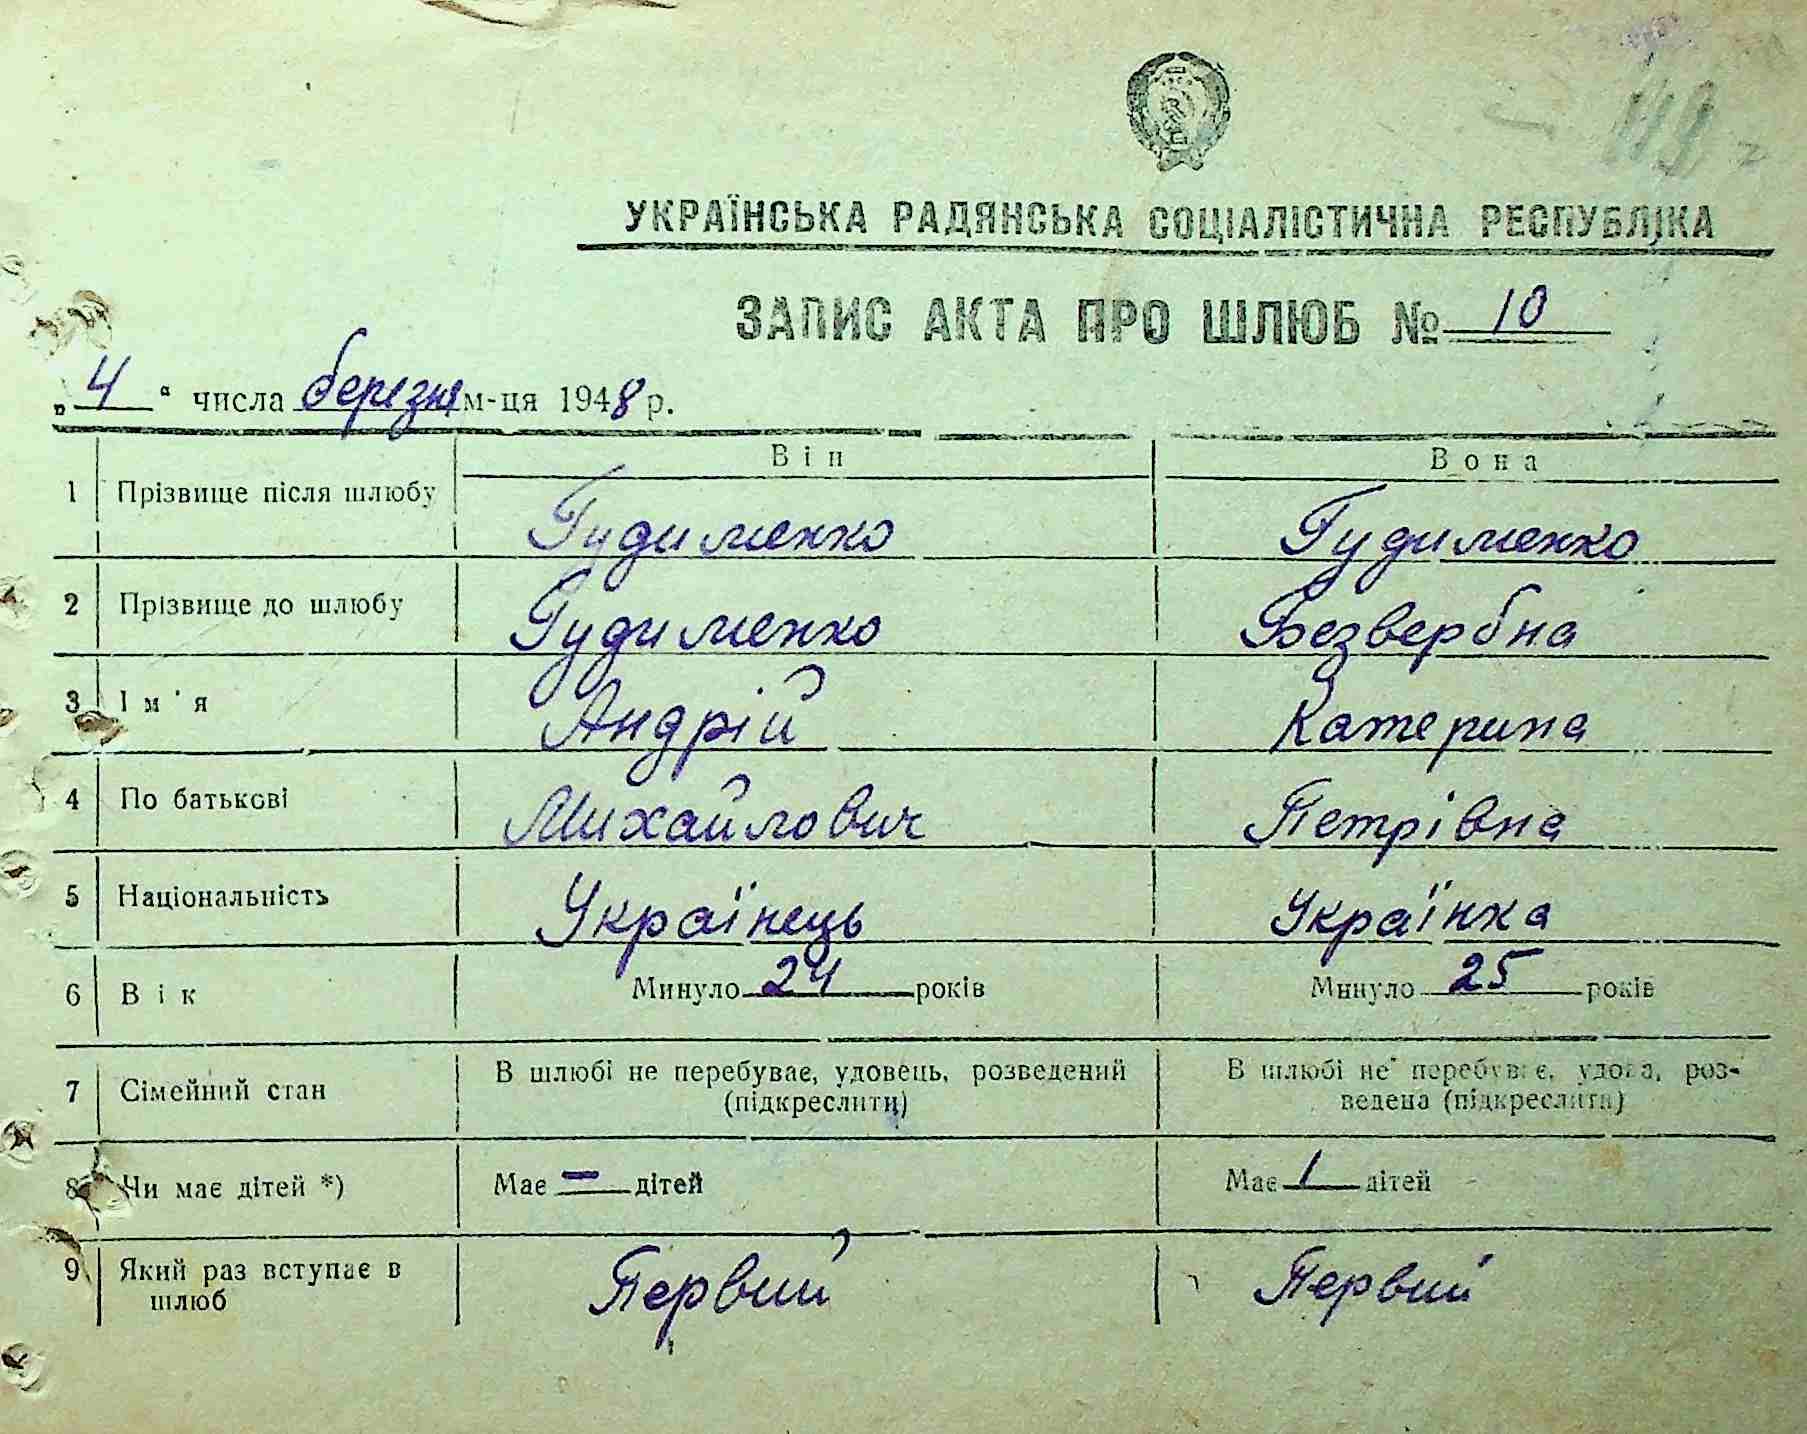 149
УКРАЇНСЬКА РАДЯНСЬКА СОЦІАЛІСТИЧНА РЕСПУБЛІКА
ЗАПИС АКТА ПРО ШЛЮБ № 10
„4“ числа березня м-ця 1948 р.
Він Вона
1 Прізвище після шлюбу Гудименко Гудименко
2 Прізвище до шлюбу Гудименко Безвербна
3 Ім'я Андрій Катерина
4 По батькові Михайлович Петрівна
5 Національність Українець Українка
6 Вік Минуло 24 років Минуло 25 років
7 Сімейний стан В шлюбі не перебуває, удовець, розведений В шлюбі не перебуває, удова, роз-
(підкреслити) ведена (підкреслити)
8 Чи має дітей *) Має – дітей Має 1 дітей
9 Який раз вступає в Первий Первий
шлюб